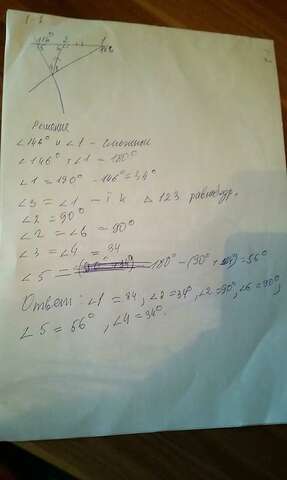 146°
Решение
∠146° и ∠1 - смежные
∠146° + ∠1 = 180°
∠1 = 190° - 146° = 34°
∠3 = ∠1 - т.к Δ 123 равнобедр.
∠2 = 90°
∠2 = ∠6 = 90°
∠3 = ∠4 = 34
∠5 = 180° - (90° + 34) = 56°
Ответ: ∠1 = 34, ∠3 = 34°, ∠2 = 90°, ∠6 = 90°,
∠5 = 56°, ∠4 = 34°.